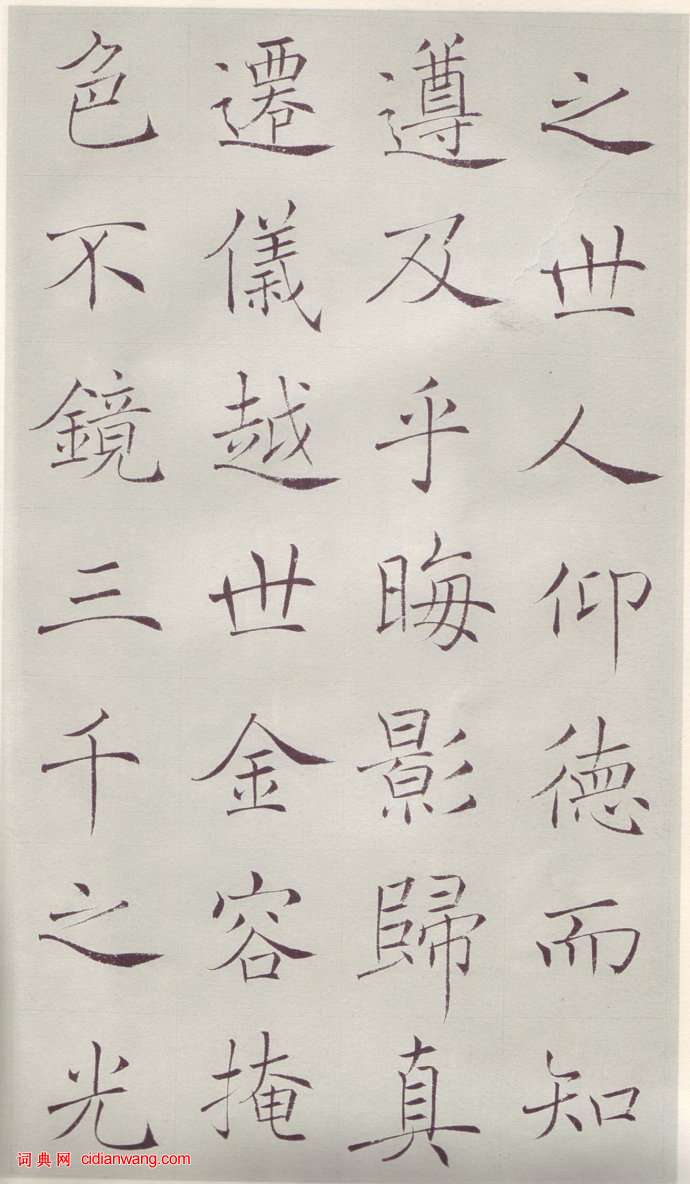 之世人仰德而知
遵及乎晦影歸真
遷儀越世金容掩
色不鏡三千之光
词典网 cidianwang.com